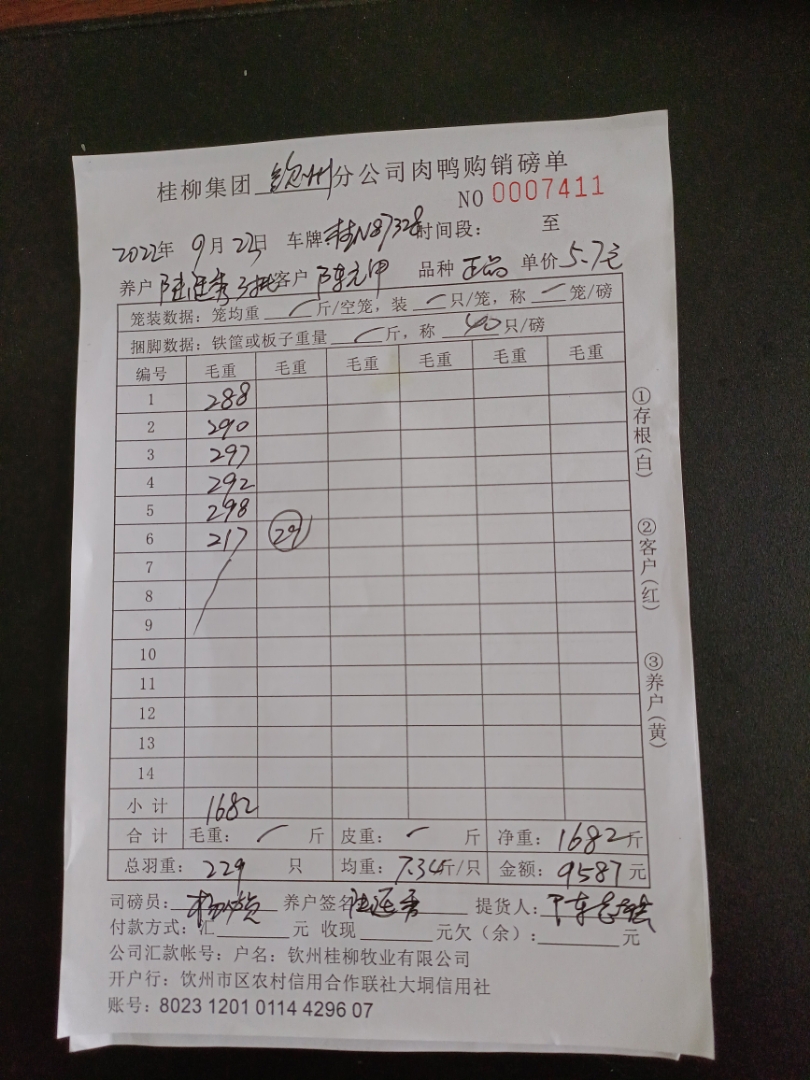 桂柳集团 钦州 分公司肉鸭购销磅单
NO 0007411
2022年 9月 23日 车牌 桂N87328 时间段： 至
养户 陆延秀 客户 陈元甲 品种 正品 单价 5.7元
笼装数据：笼均重 / 斤/空笼，装 / 只/笼，称 / 笼/磅
捆脚数据：铁筐或板子重量 / 斤，称 40 只/磅
编号 毛重 毛重 毛重 毛重 毛重 毛重
1 288
2 290
3 297
4 292
5 298
6 217 29
7
8
9
10
11
12
13
14
小计 1682
合计 毛重： / 斤 皮重： / 斤 净重：1682斤
总羽重：229 只 均重：7.34斤/只 金额：9587元
司磅员： 养户签名 陆延秀 提货人：
付款方式：汇 元 收现 元欠（余）： 元
公司汇款帐号：户名：钦州桂柳牧业有限公司
开户行：钦州市区农村信用合作联社大垌信用社
账号：8023 1201 0114 4296 07
①存根（白）
②客户（红）
③养户（黄）